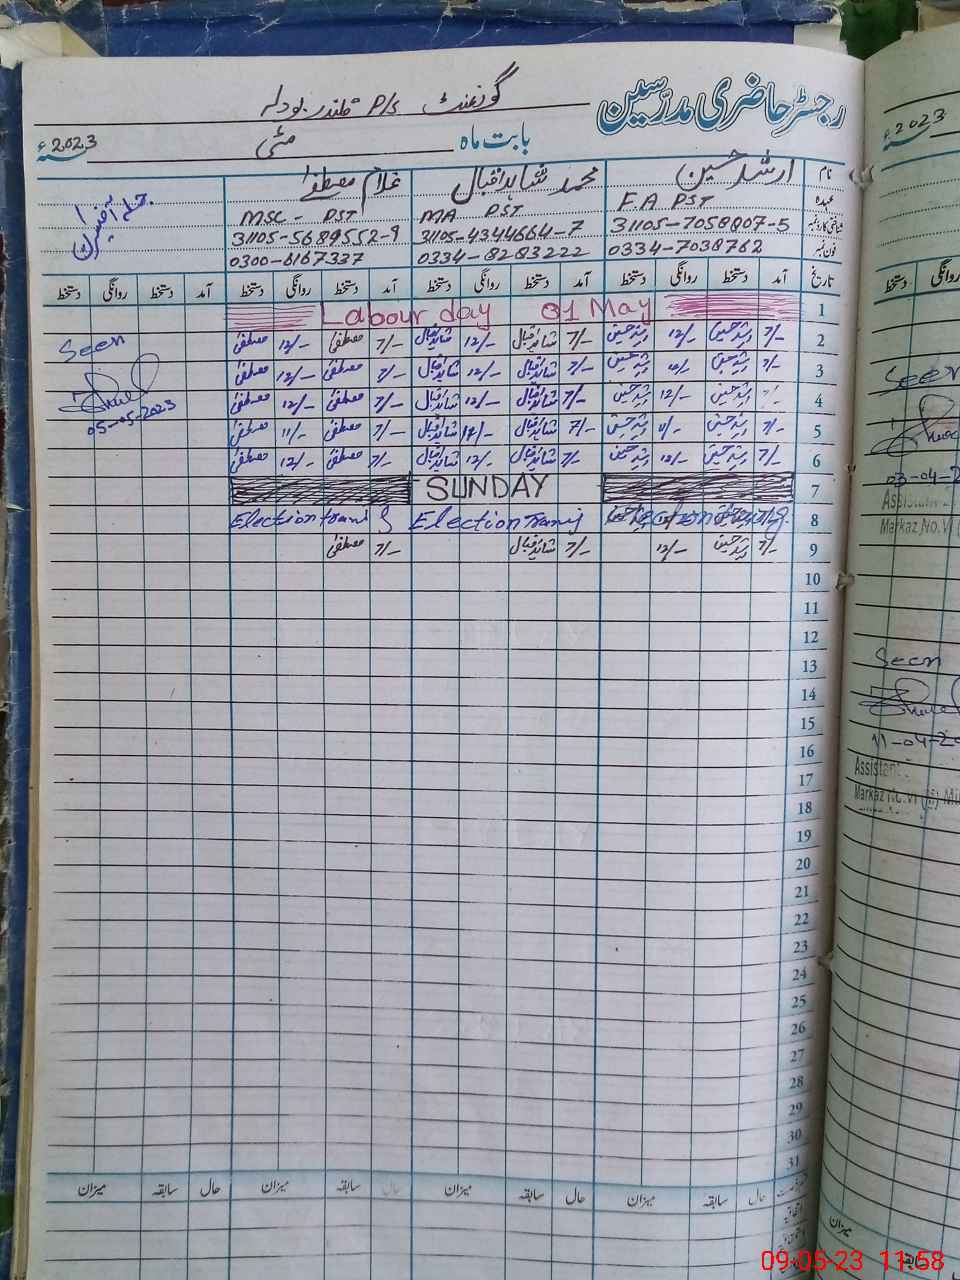 رجسٹر حاضری مدرسین
گورنمنٹ P/S قلندر بودلہ
بابت ماہ مئی 2023ء
نام ارشد حسین محمد شاہد اقبال غلام مصطفےٰ
عہدہ F.A PST MA PST MSC - PST
شناختی کارڈ نمبر 31105-7058807-5 31105-4344664-7 31105-5689552-9
فون نمبر 0334-7038762 0334-8283222 0300-6167337
تاریخ آمد دستخط روانگی دستخط آمد دستخط روانگی دستخط آمد دستخط روانگی دستخط آمد دستخط روانگی دستخط
1 Labour day 01 May
2 7/- ارشد حسین 12/- ارشد حسین 7/- شاہد اقبال 12/- شاہد اقبال 7/- مصطفیٰ 12/- مصطفیٰ Seen
3 7/- ارشد حسین 12/- ارشد حسین 7/- شاہد اقبال 12/- شاہد اقبال 7/- مصطفیٰ 12/- مصطفیٰ
4 7/- ارشد حسین 12/- ارشد حسین 7/- شاہد اقبال 12/- شاہد اقبال 7/- مصطفیٰ 12/- مصطفیٰ 05-05-2023
5 7/- ارشد حسین 11/- ارشد حسین 7/- شاہد اقبال شاہد اقبال 7/- مصطفیٰ 11/- مصطفیٰ
6 7/- ارشد حسین 12/- ارشد حسین 7/- شاہد اقبال 12/- شاہد اقبال 7/- مصطفیٰ 12/- مصطفیٰ
7 SUNDAY
8 Election Election
9 7/- ارشد حسین 12/- 7/- شاہد اقبال 7/- مصطفیٰ
10
11
12
13
14
15
16
17
18
19
20
21
22
23
24
25
26
27
28
29
30
31
حال سابقہ میزان حال سابقہ میزان حال سابقہ میزان حال سابقہ میزان
2023ء
روانگی دستخط
Seen
03-04-2
Markaz No.VI
Seen
11-04-20
Markaz No.VI
میزان
سابقہ
09-05-23 11:58